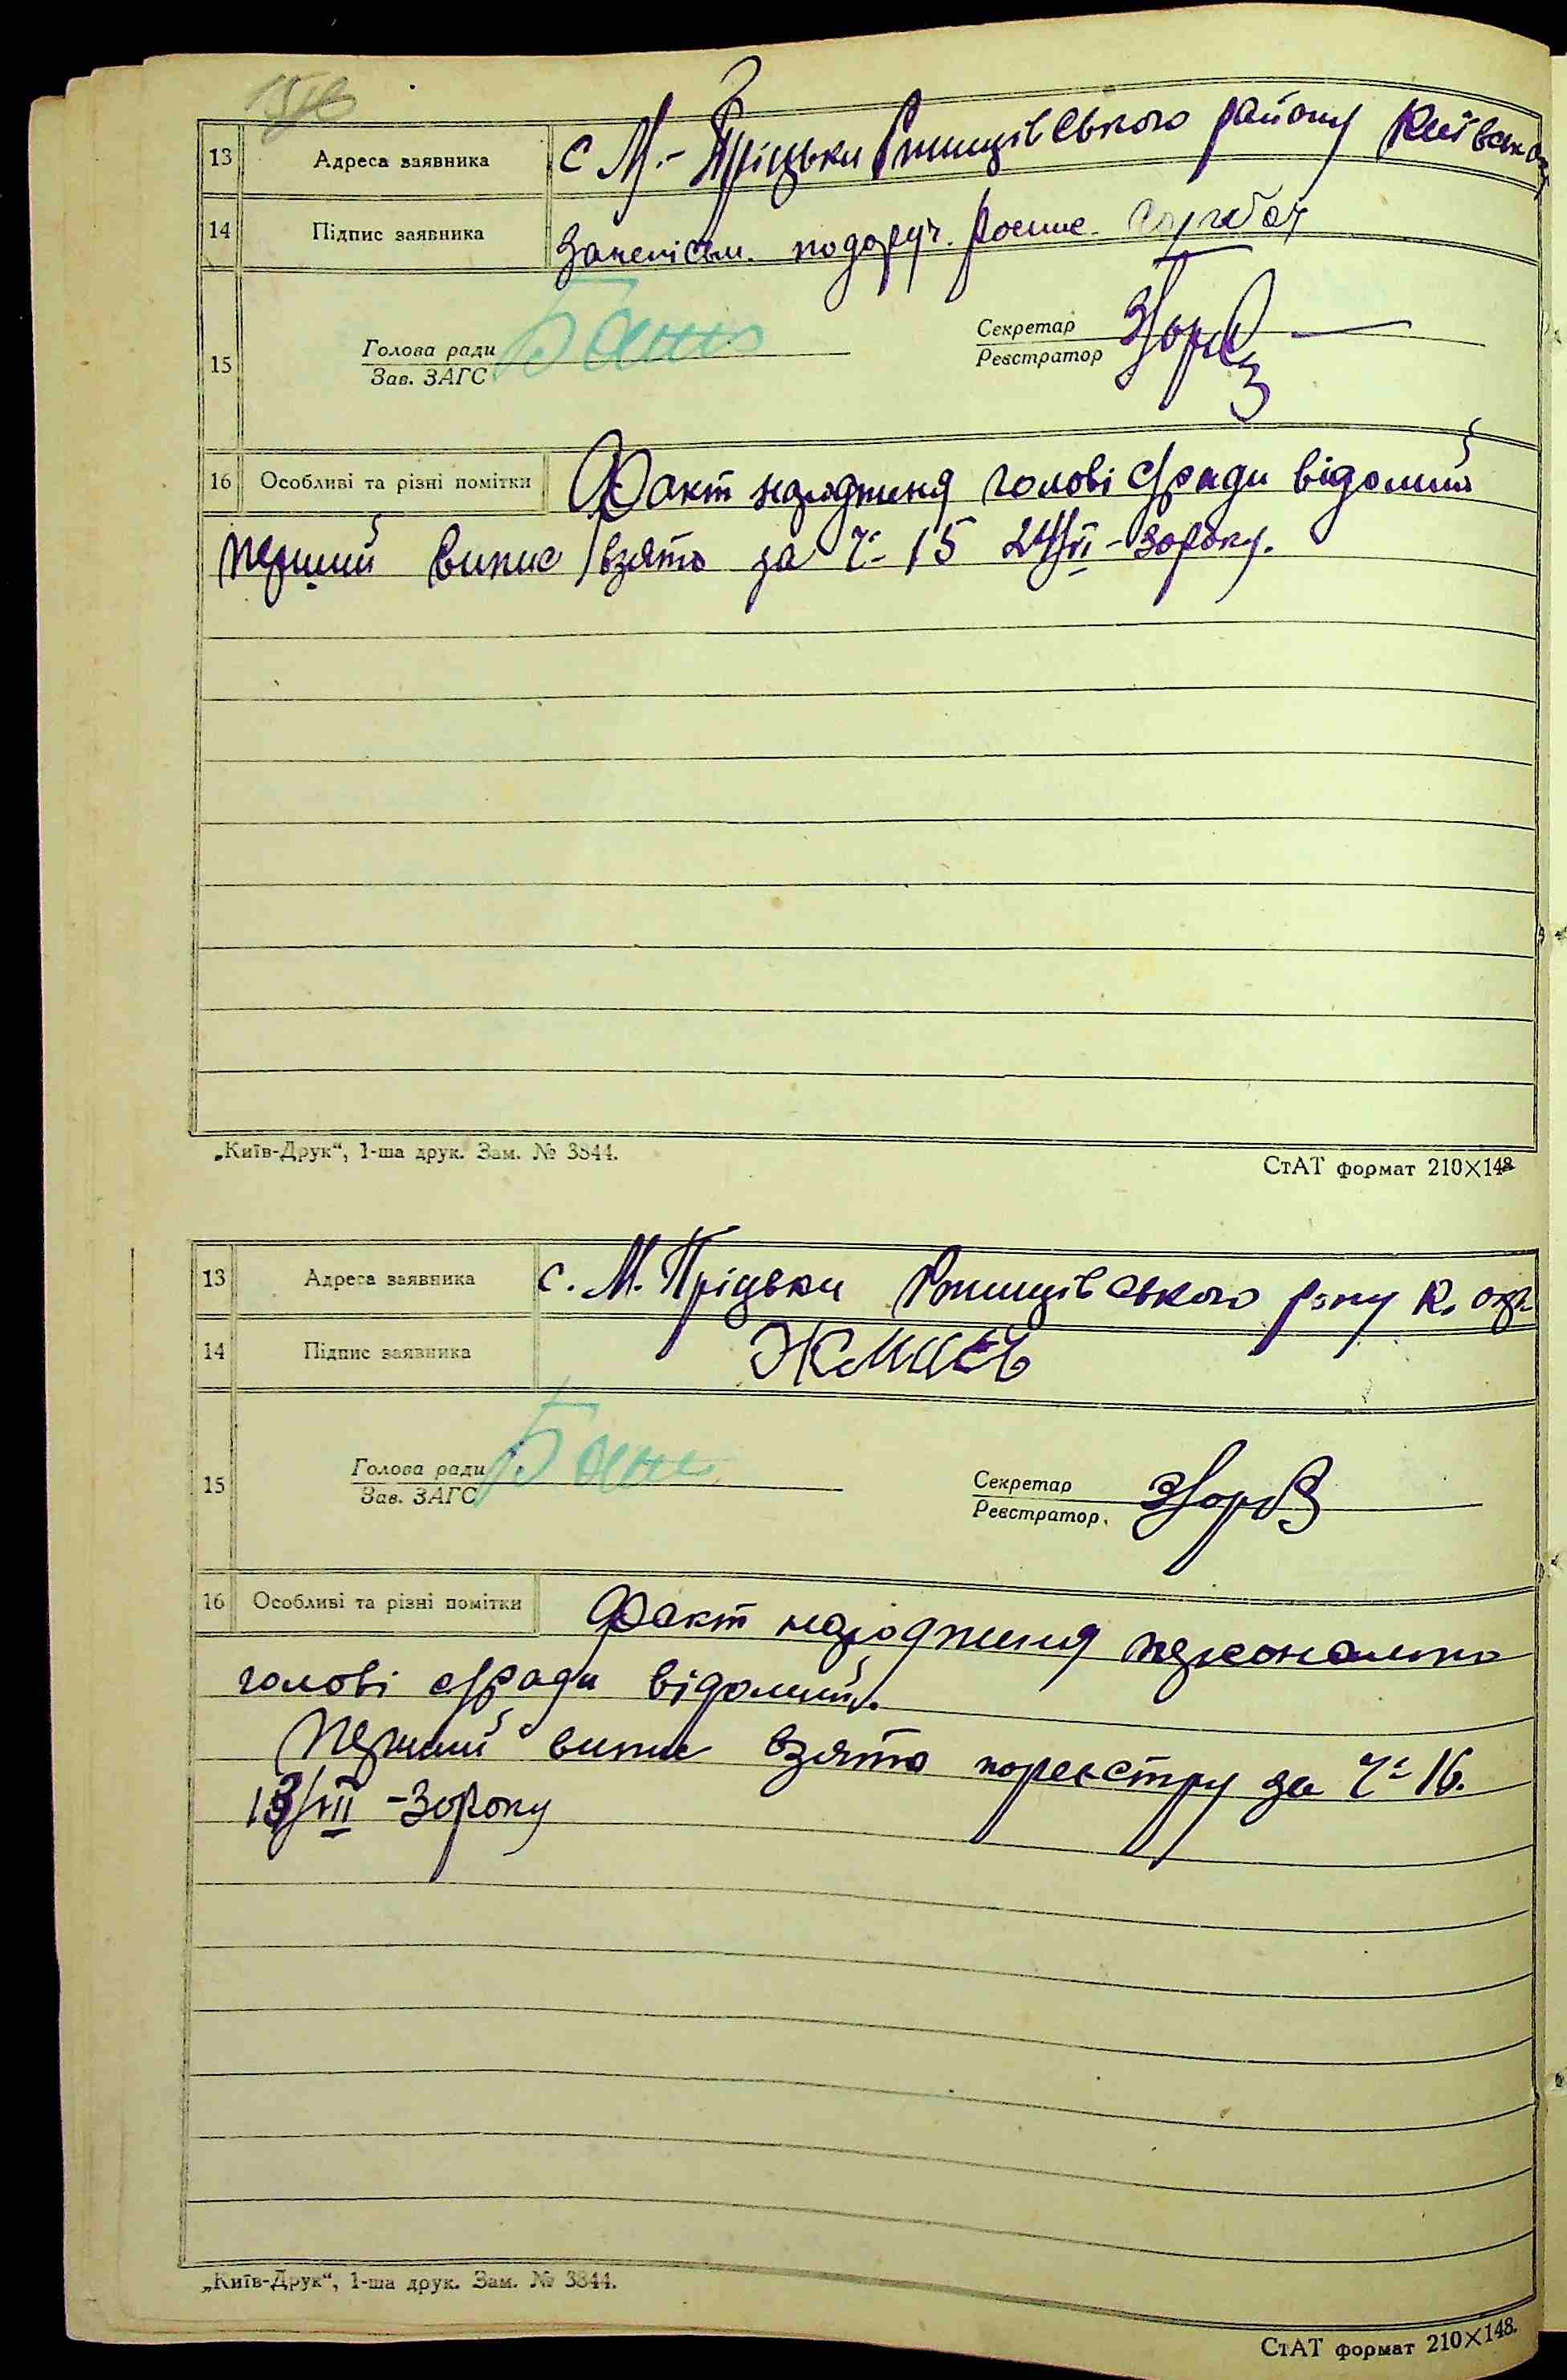 13 Адреса заявника с М.-Пріцьки Ржищівського району Київської
14 Підпис заявника Занепісьм. подоруч. Роспис.
15 Голова ради Секретар
Зав. ЗАГС Реєстратор
16 Особливі та різні помітки Факт народженя голові с/ради відомий
перший випис взято за ч- 15 24/VII-30 року.
„Київ-Друк“, 1-ша друк. Зам. № 3844.
СтАТ формат 210×148
13 Адреса заявника с. М. Пріцьки Ржищівського р-ну К. окр.
14 Підпис заявника
15 Голова ради Секретар
Зав. ЗАГС Реєстратор.
16 Особливі та різні помітки Факт народженя персонально
голові с/ради відомий.
Перший випис взято пореєстру за ч- 16.
-30 року
„Київ-Друк“, 1-ша друк. Зам. № 3844.
СтАТ формат 210×148.